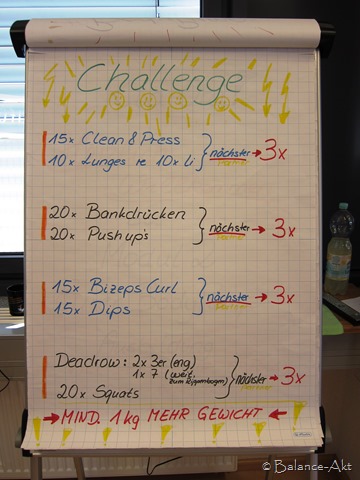 Challenge
15x Clean & Press
10x Lunges re 10x li
nächster → 3x
20x Bankdrücken
20x Push up's
nächster → 3x
15x Bizeps Curl
15x Dips
nächster → 3x
Deadrow: 2x 3er (eng)
1x 7 (weit,
zum Rippenbogen)
20x Squats
nächster → 3x
→ MIND. 1kg MEHR GEWICHT ←
© Balance-Akt